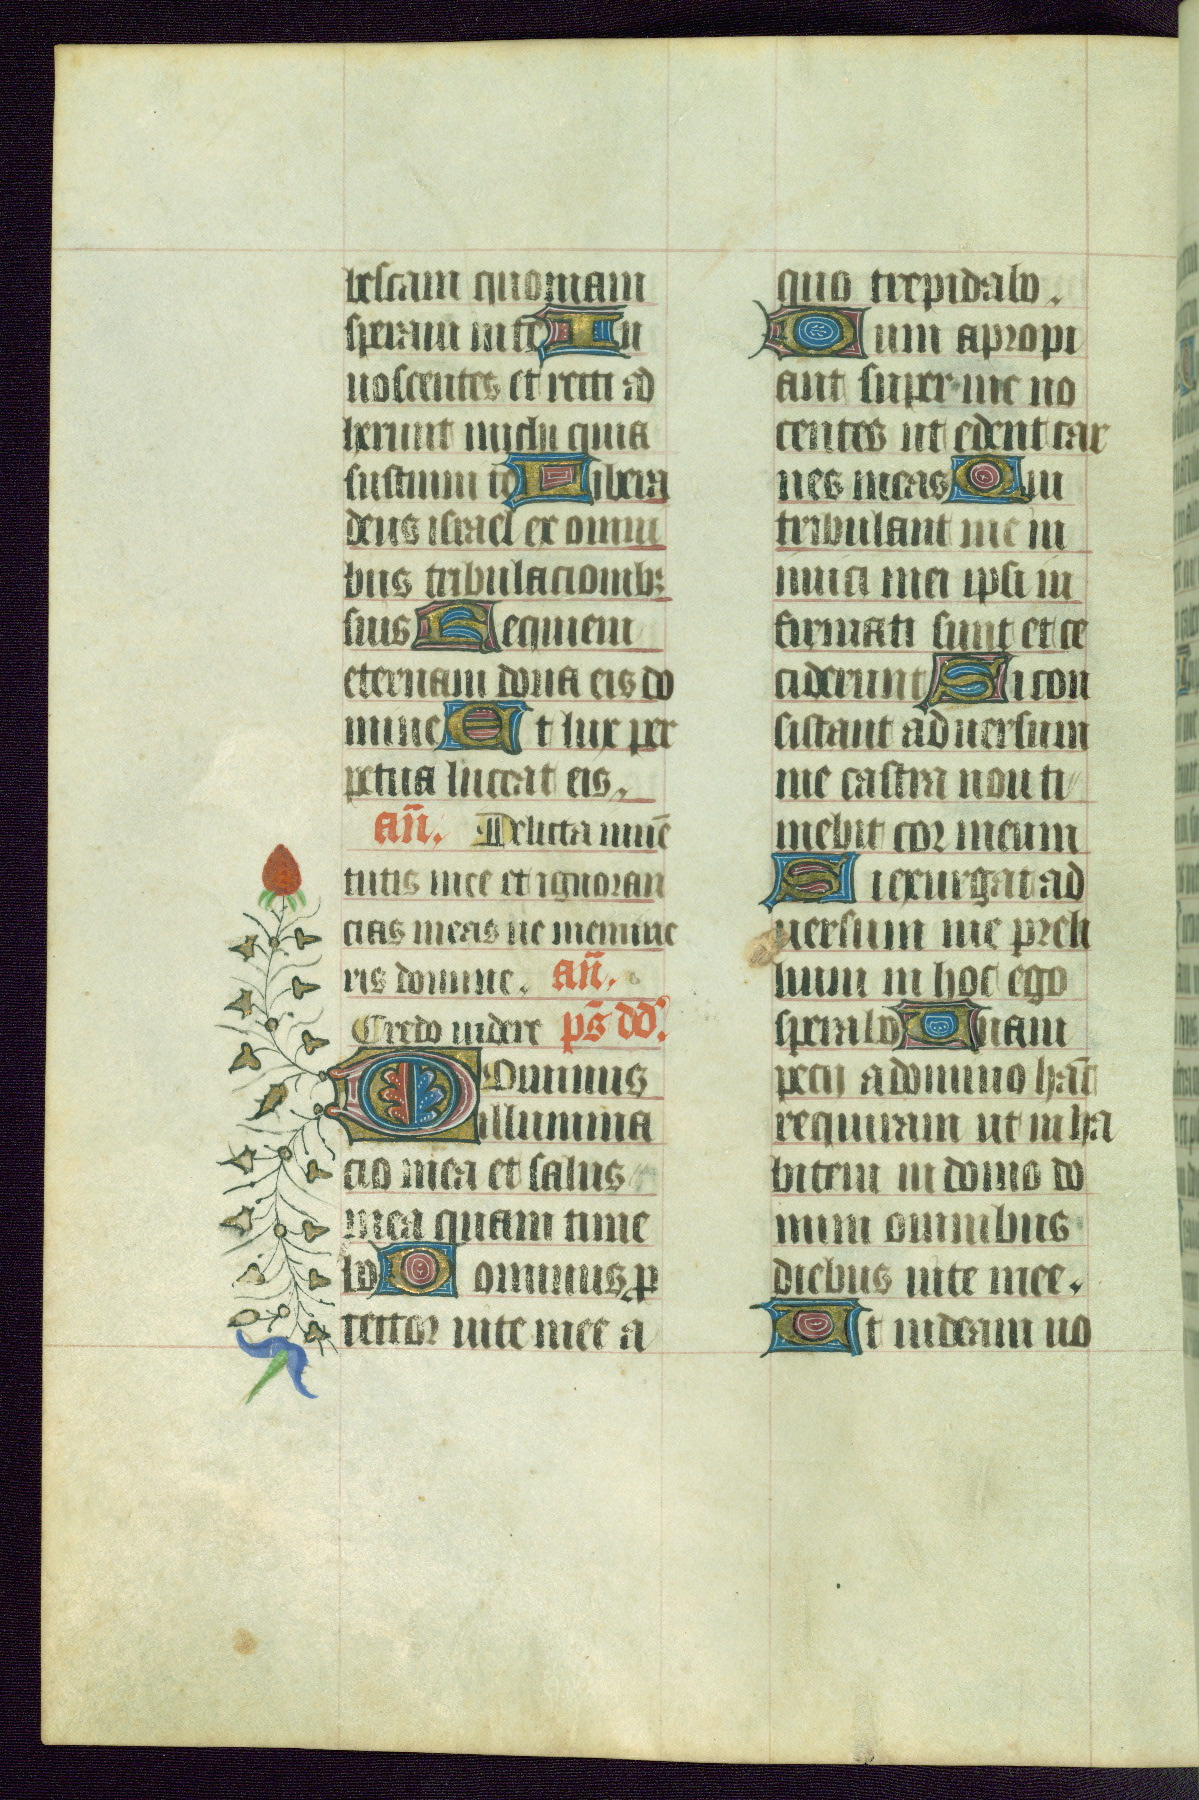 bescam quoniam
speraui in te In
nocentes et recti ad
heserunt michi quia
sustinui te Libera
deus israel ex omni
bus tribulacionibꝫ
suis Requiem
eternam dona eis do
mine Et lux per
petua luceat eis.
an̄. Delicta iuuē
tutis mee et ignoran
cias meas ne memine
ris domine. an̄.
Credo videre ps̄ dd.
Dominus
illumina
cio mea et salus
mea quam time
bo Dominus ꝓ
tector vite mee a
quo trepidabo.
Dum apropi
ant super me no
centes ut edent car
nes meas Qui
tribulant me in
imici mei ipsi in
firmati sunt et ce
ciderunt Si con
sistant aduersum
me castra non ti
mebit cor meum
Si exurgat ad
uersum me preli
lium in hoc ego
sperabo Unam
pecij a domino hāc
requiram ut in ha
bitem in domo do
mini omnibus
diebus vite mee.
Ut videam uo